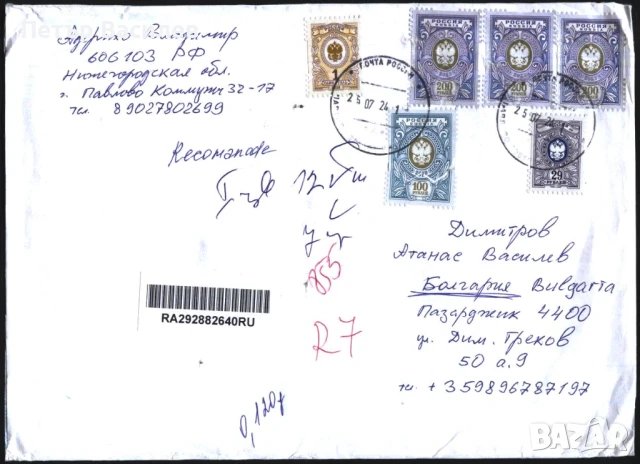 Петър Василев
Владимир
606103 РФ
Нижегородская обл.
г. Павлово Коммунст 32-17
тел. 89027802699
Recomande
RA292882640RU
855
R7
0,120г
1
РОССИЯ
200
РОССИЯ
200
РОССИЯ
200
ПОЧТА РОССИИ
25 07 24 1
25 07 24 1
РОССИЯ
100
РУБЛЕЙ
РОССИЯ
29
РУБЛЕЙ
Димитров
Атанас Василев
Болгарие Bulgaria
Пазарджик 4400
ул. Дим. Греков
50 а.9
тел. +359896787197
BAZAR